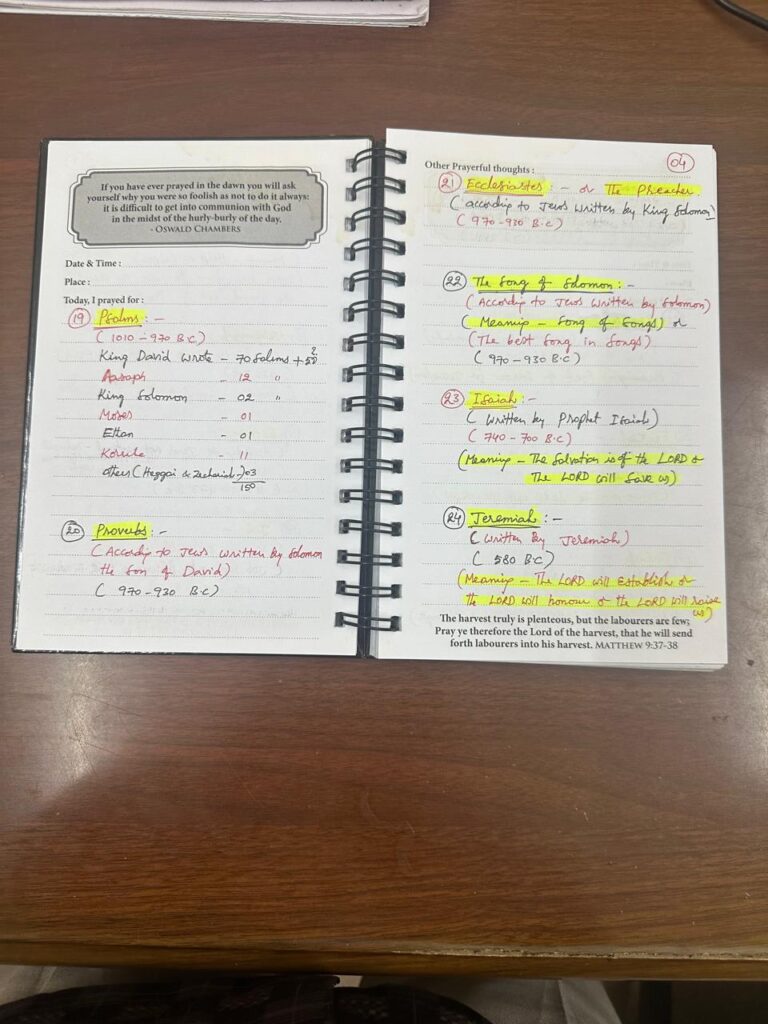 If you have ever prayed in the dawn you will ask
yourself why you were so foolish as not to do it always:
it is difficult to get into communion with God
in the midst of the hurly-burly of the day.
- OSWALD CHAMBERS
Date & Time :
Place :
Today, I prayed for :
19 Psalms : -
( 1010 - 970 B.C )
King David wrote - 70 Salms +
Aasaph - 12 "
King Solomon - 02 "
Moses - 01
Ethan - 01
Korah - 11
others (Heggai & Zechariah) 03
150
20 Proverbs : -
( According to Jews written by Solomon
the Son of David )
( 970 - 930 B.C )
Other Prayerful thoughts :
04
21 Ecclesiastes : - or The Preacher
( according to Jews written by King Solomon )
( 970 - 930 B.C )
22 The Song of Solomon : -
( According to Jews written by Solomon )
( Meaning - Song of Songs ) or
( The best Song in Songs )
( 970 - 930 B.C )
23 Isaiah : -
( written by Prophet Isaiah )
( 740 - 700 B.C )
( Meaning - The Salvation is of the LORD or
The LORD will save us )
24 Jeremiah : -
( written By Jeremiah )
( 580 B.C )
( Meaning - The LORD will Establish or
the LORD will honour or the LORD will raise
us )
The harvest truly is plenteous, but the labourers are few;
Pray ye therefore the Lord of the harvest, that he will send
forth labourers into his harvest. MATTHEW 9:37-38